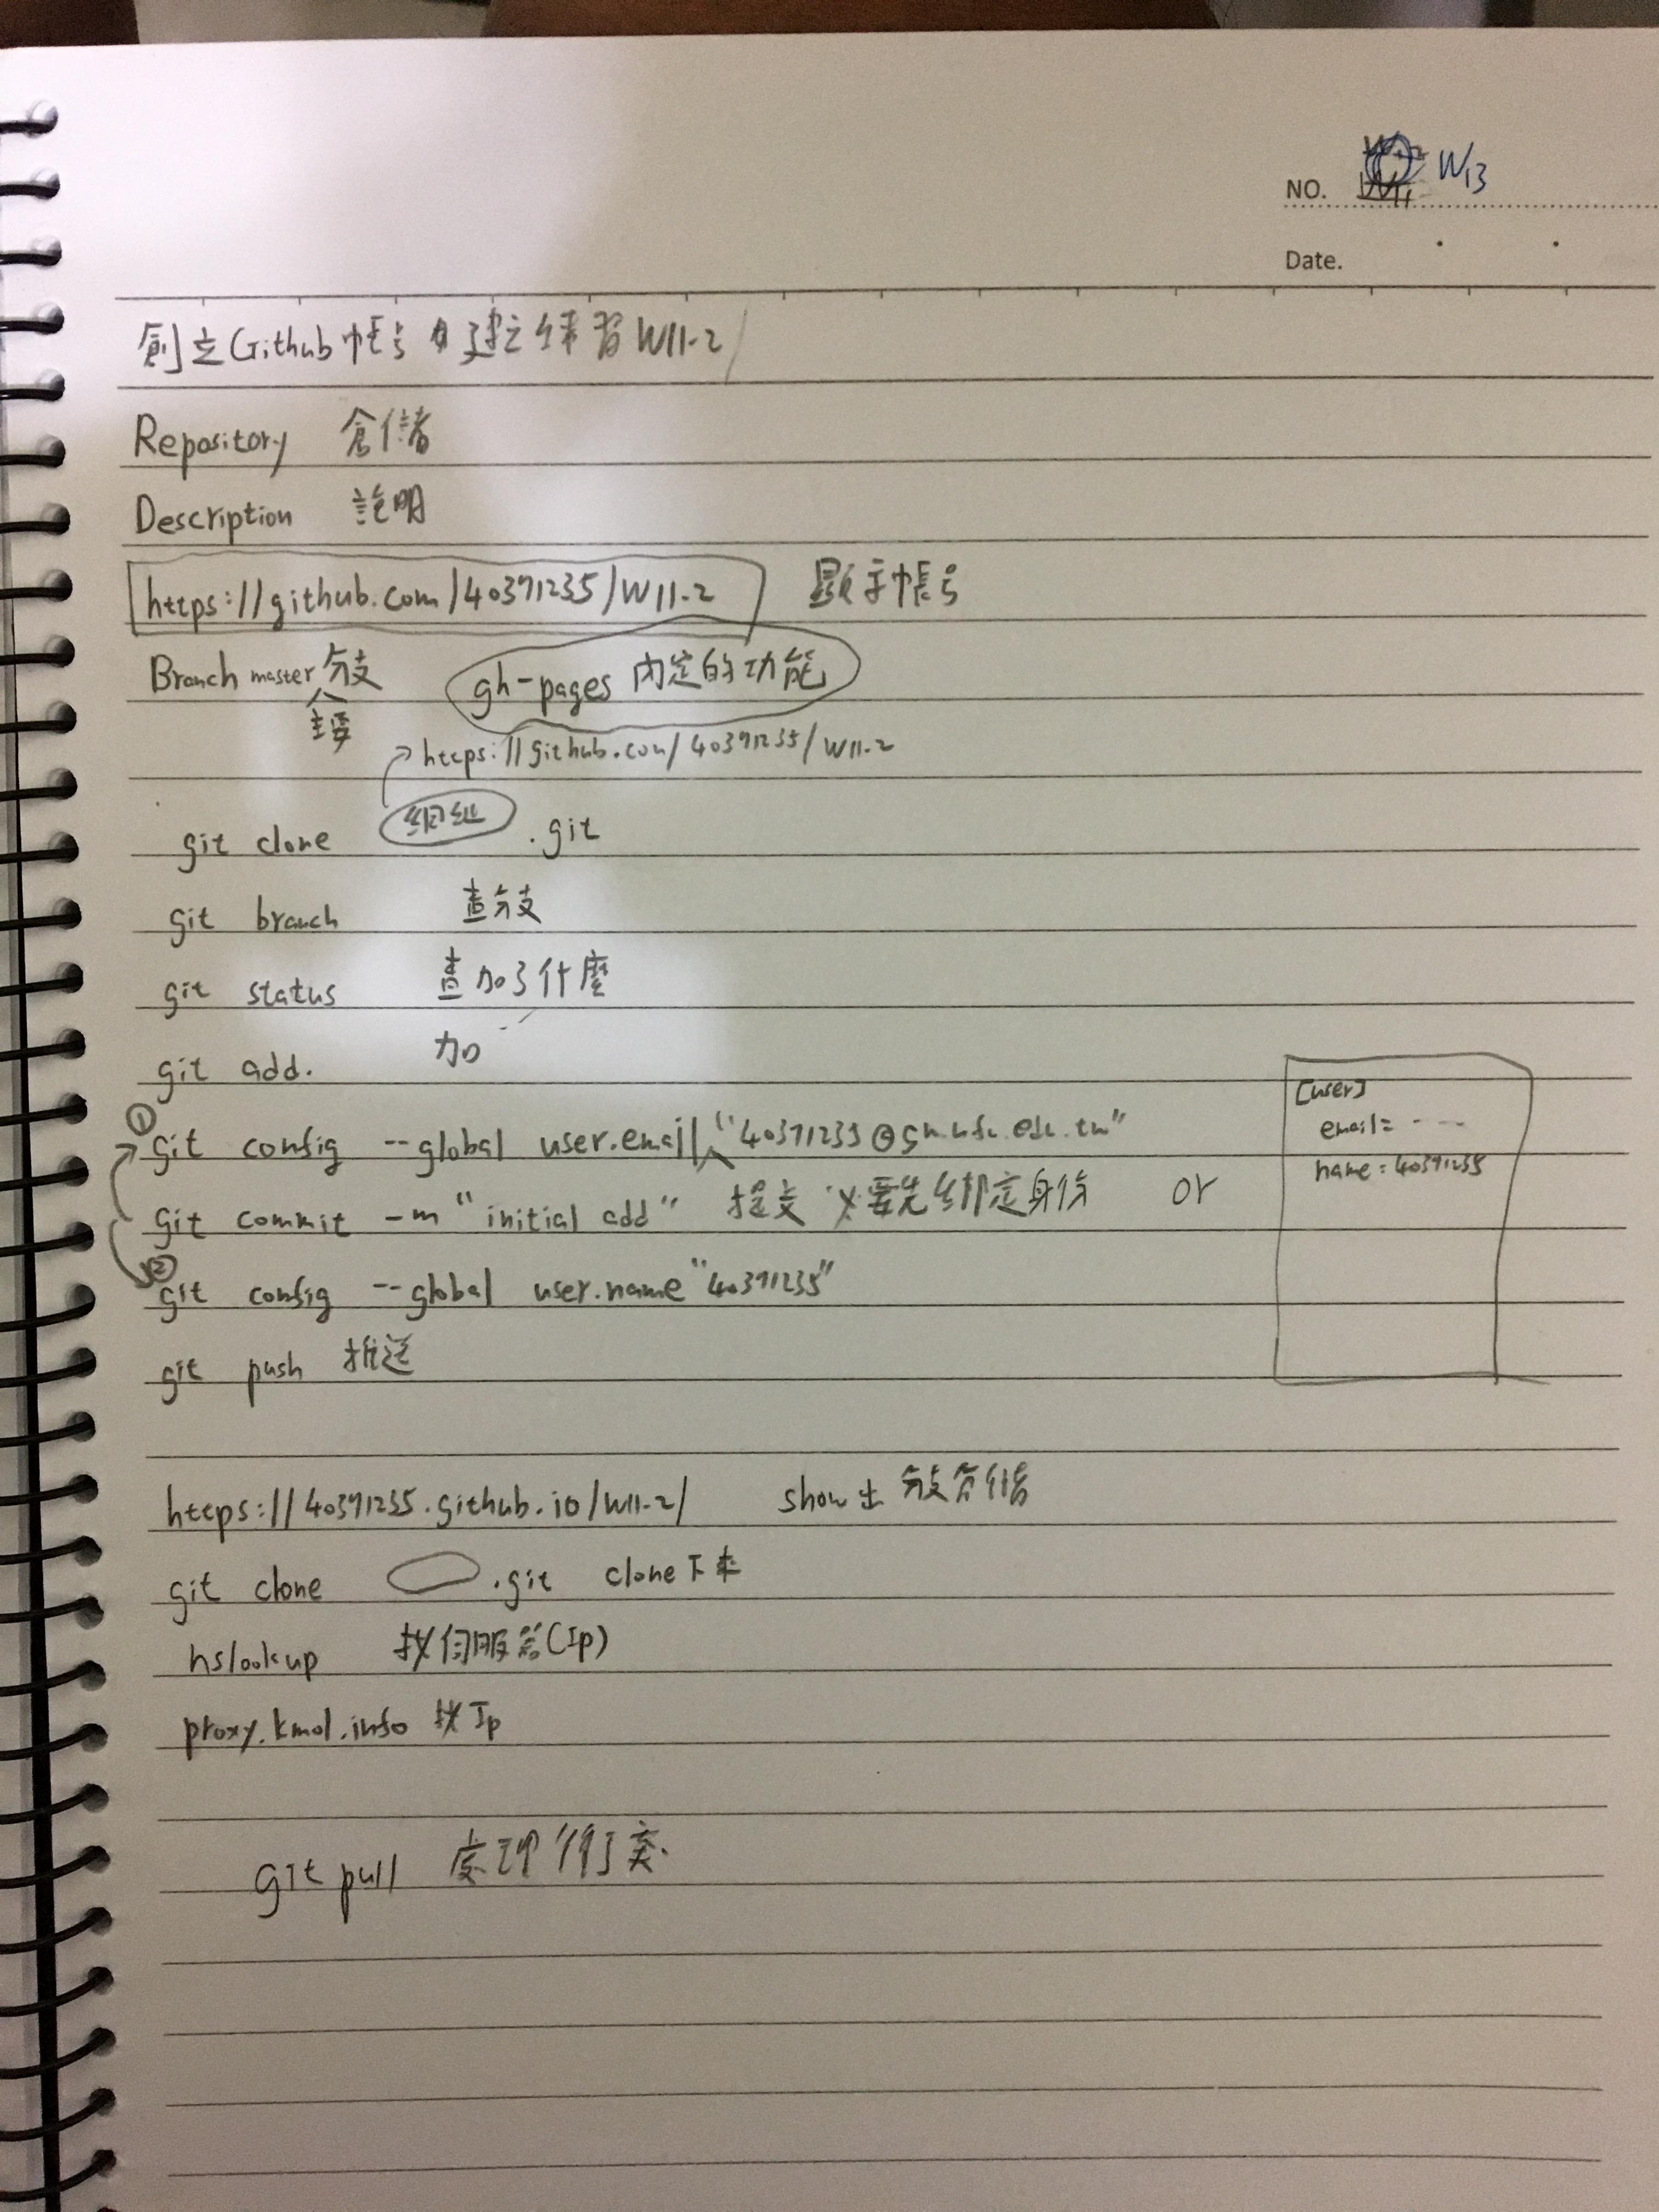 NO. W13
Date.
創立Github帳号 建立練習W11-2
Repository 倉儲
Description 說明
https://github.com/40371235/W11-2 顯示帳号
Branch master 分支 gh-pages 內定的功能
主要
https://github.com/40371235/W11-2
git clone 網址 .git
git branch 查分支
git status 查加了什麼
git add. 加
[user]
email= ----
name=40371235
① git config --global user.email "40371235@gm.nfu.edu.tw"
git commit -m "initial add" 提交 要先綁定身份 or
② git config --global user.name "40371235"
git push 推送
https://40371235.github.io/W11-2/ show出 分支倉儲
git clone .git clone下來
nslookup 找伺服器(Ip)
proxy.kmol.info 找Ip
git pull 處理